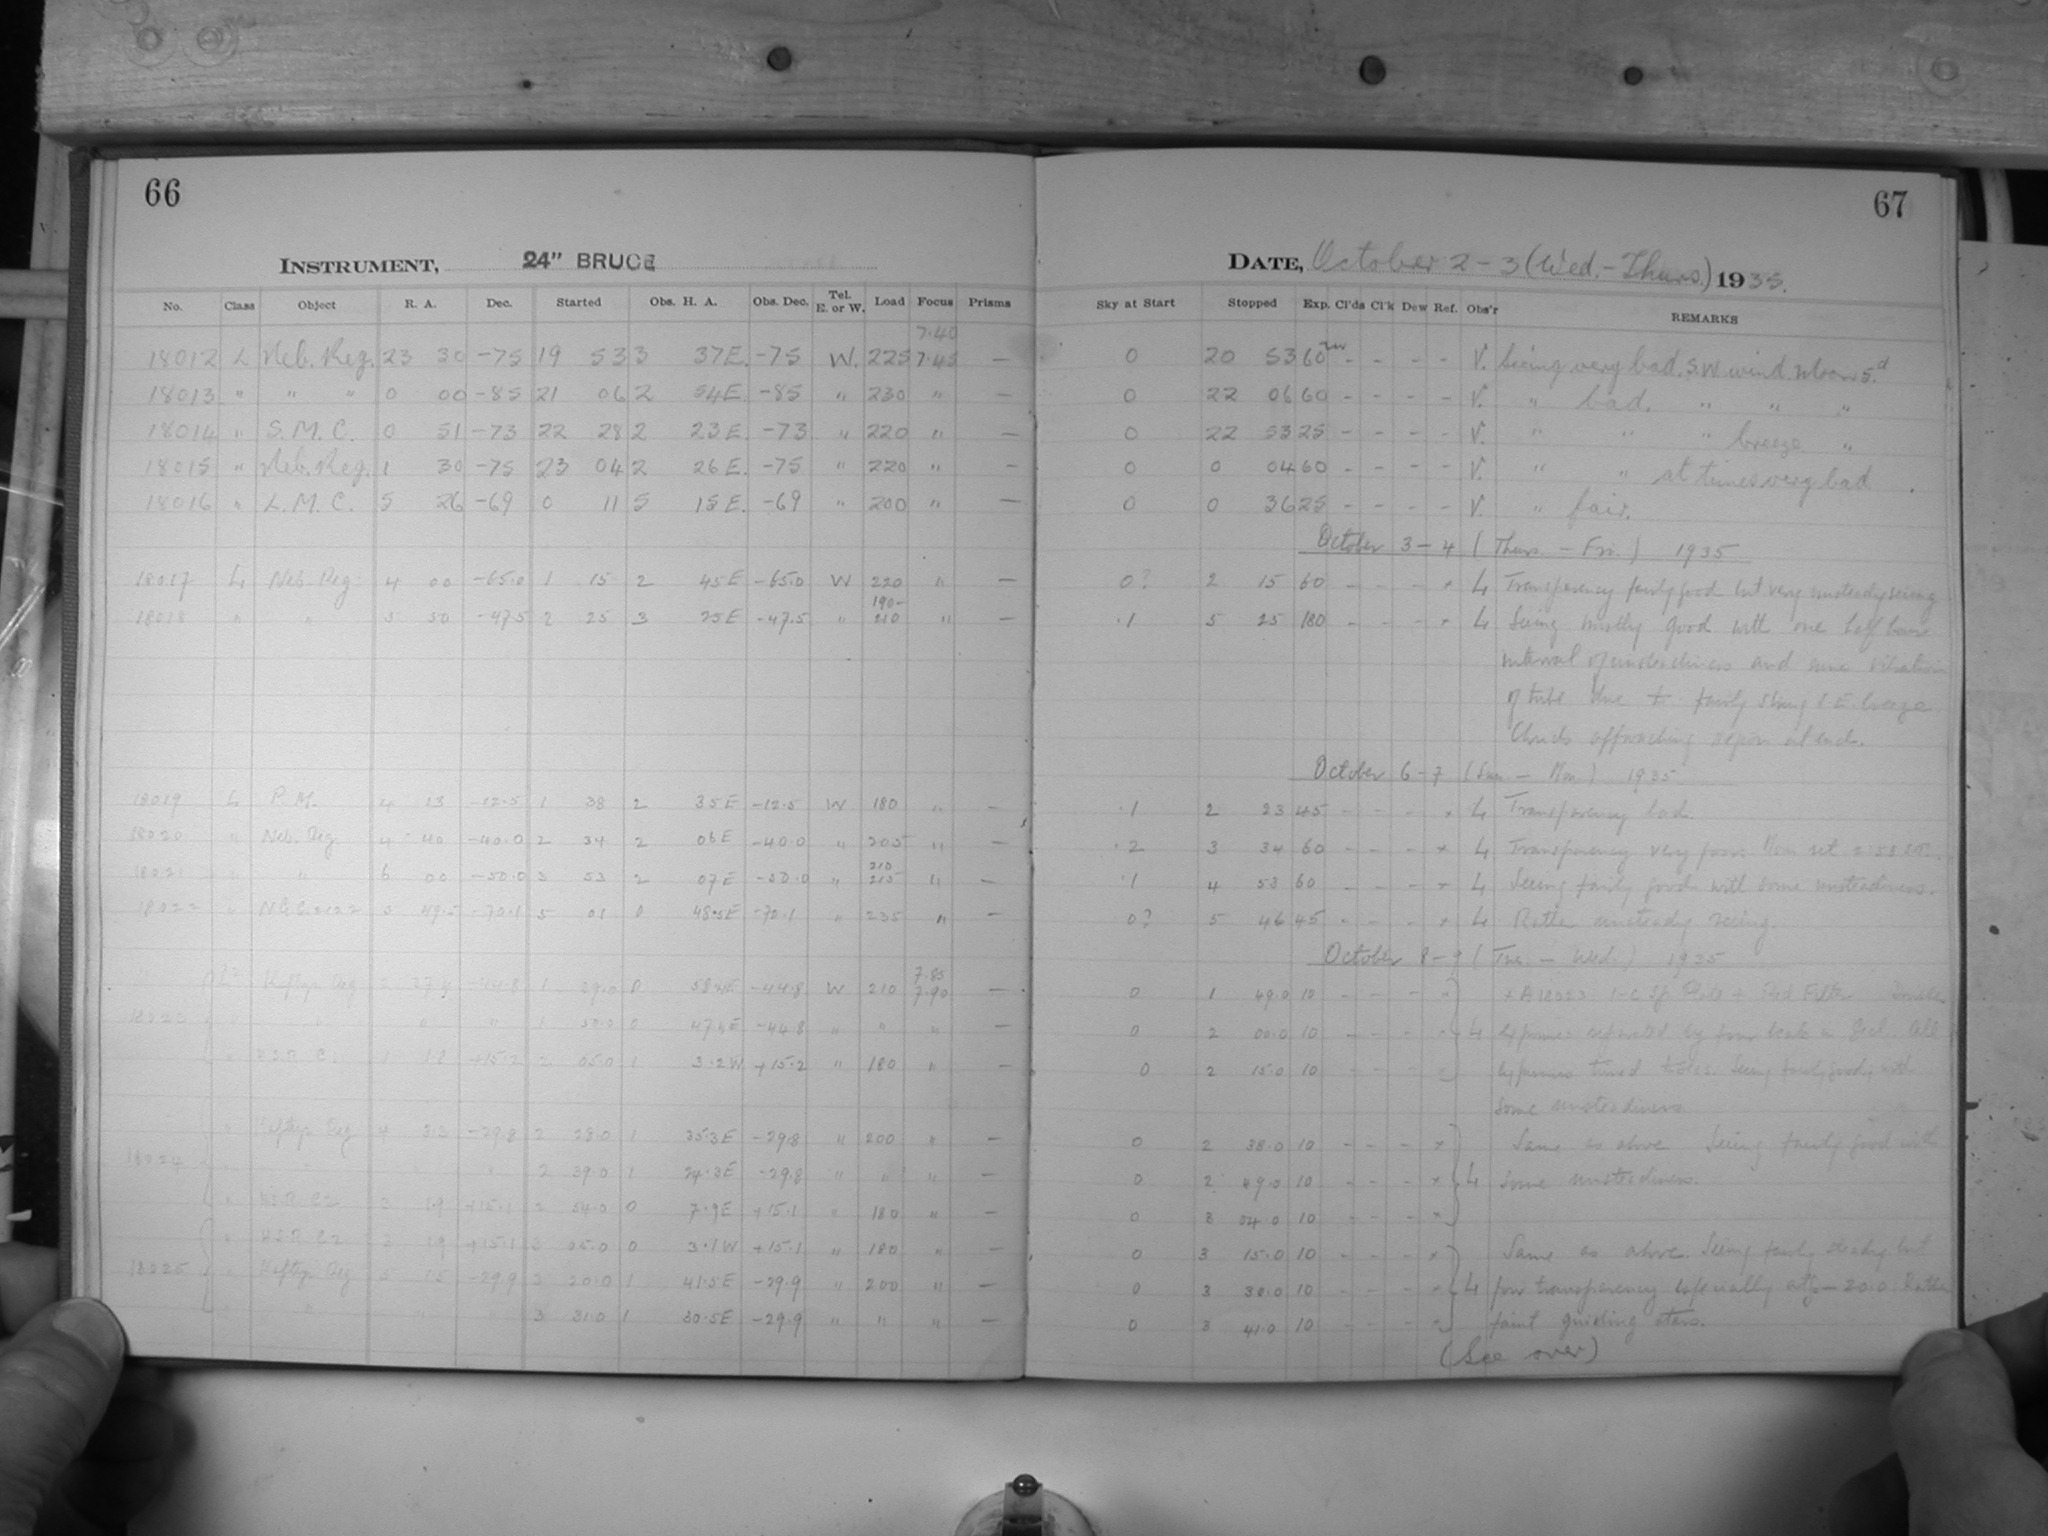 66
INSTRUMENT, 24" BRUCE
No. Class Object R. A. Dec. Started Obs. H. A. Obs. Dec. Tel. E. or W. Load Focus Prisms
7.40
18012 L Neb. Reg. 23 30 -75 19 53 3 37E. -75 W. 225 7.45 —
18013 " " " 0 00 -85 21 06 2 54E. -85 " 230 " —
18014 " S. M. C. 0 51 -73 22 28 2 23E. -73 " 220 " —
18015 " Neb. Reg. 1 30 -75 23 04 2 26E. -75 " 220 " —
18016 " L. M. C. 5 26 -69 0 11 5 15E. -69 " 200 " —
18017 L Neb. Reg. 4 00 -65.0 1 15 2 45E -65.0 W 220 " —
190-
18018 " " 5 50 -47.5 2 25 3 25E -47.5 " 210 " —
18019 L P. M. 4 13 -12.5 1 38 2 35E -12.5 W 180 " —
18020 " Neb. Reg. 4 40 -40.0 2 34 2 06E -40.0 " 205 " —
210
18021 " " 6 00 -50.0 3 53 2 07E -50.0 " 215 " —
18022 " 5 49.5 -70.1 5 01 0 48.5E -70.1 " 235 " —
7.85
Kapteyn Reg 2 37.4 -44.8 1 39.0 0 58.4E -44.8 W 210 7.90 —
18023 " " " 1 50.0 0 47.4E -44.8 " " " —
" +15.2 2 05.0 1 3.2W +15.2 " 180 " —
" Kapteyn Reg 4 3.3 -29.8 2 28.0 1 35.3E -29.8 " 200 " —
18024 2 39.0 1 24.3E -29.8 " " " —
" 3 1.9 +15.1 2 54.0 0 7.9E +15.1 " 180 " —
" 3 1.9 +15.1 3 05.0 0 3.1W +15.1 " 180 " —
18025 " Kapteyn Reg 5 15 -29.9 3 20.0 1 41.5E -29.9 " 200 " —
" " " 3 31.0 1 30.5E -29.9 " " " —
67
DATE, October 2-3 (Wed.-Thurs.) 1935.
Sky at Start Stopped Exp. Cl'ds Cl'k Dew Ref. Obs'r REMARKS
0 20 53 60 - - - - V. Seeing very bad. S.W wind. Moon 5.d
0 22 06 60 - - - - V. " bad. " " "
0 22 53 25 - - - - V. " " " breeze "
0 0 04 60 - - - - V. " " at times very bad.
0 0 36 25 - - - - V. " fair.
October 3-4 (Thurs. - Fri.) 1935
0? 2 15 60 - - - × L Transparency fairly good but very unsteady seeing
.1 5 25 180 - - - × L Seeing mostly good with one half hour
interval of unsteadiness and some vibration
of tube due to fairly strong S.E. breeze.
Clouds approaching region at end.
October 6-7 (Sun - Mon) 1935
.1 2 23 45 - - - × L Transparency bad.
.2 3 34 60 - - - × L Transparency very poor. Moon set
.1 4 53 60 - - - × L Seeing fairly good with some unsteadiness.
0? 5 46 45 - - - × L Rather unsteady seeing.
October 8-9 (Tue. - Wed.) 1935
0 1 49.0 10 - - - × + A18023 1-C Sp. Plate + Red Filter Double
0 2 00.0 10 - - - × L exposures separated by four in Decl. All
0 2 15.0 10 - - - × exposures timed Seeing fairly good, with
some unsteadiness
0 2 38.0 10 - - - × Same as above Seeing fairly good with
0 2 49.0 10 - - - × L some unsteadiness.
0 3 04.0 10 - - - ×
0 3 15.0 10 - - - × Same as above. Seeing fairly steady but
0 3 30.0 10 - - - × L poor transparency especially Rather
0 3 41.0 10 - - - × faint guiding stars.
(See over)